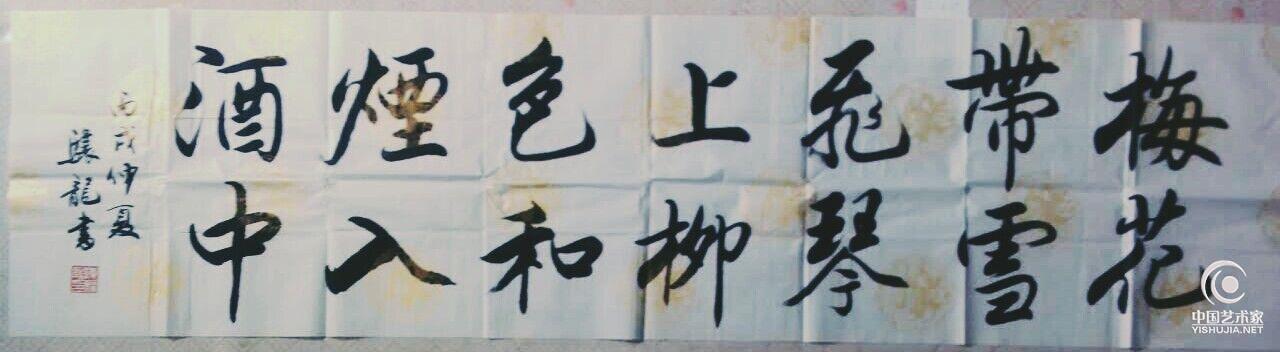 梅花
帶雪
飛琴
上柳
色和
煙入
酒中
丙戌仲夏
龍書
中国艺术家
YISHUJIA.NET